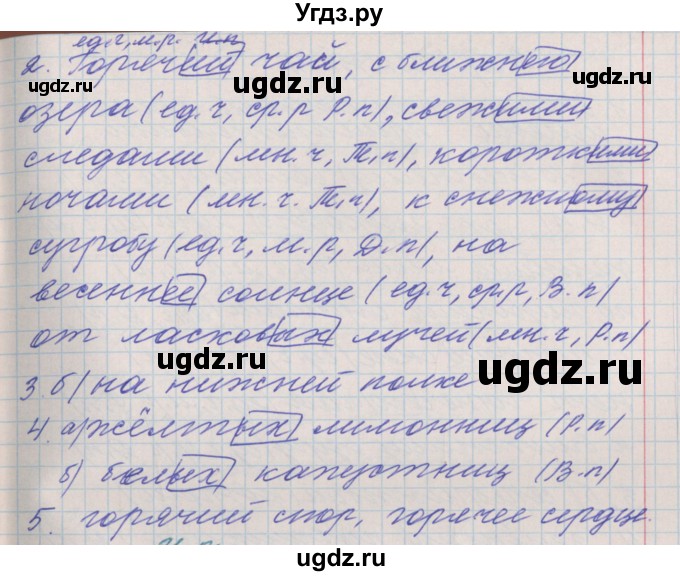 Угдз.ру
ед.ч, м.р. И.п
2. Горячий чай, с ближнего
озера (ед.ч, ср.р Р.п), свежими
следами (мн.ч, Т.п), короткими
ночами (мн.ч. Т.п), к снежному
сугробу (ед.ч, м.р, Д.п), на
весеннее солнце (ед.ч, ср.р, В.п)
от ласковых лучей (мн.ч, Р.п)
3. б) на нижней полке
4. а) жёлтых лимонниц (Р.п)
б) белых капустниц (В.п)
5. горячий спор, горячее сердце.
ugdz.ru
ugdz.ru
ugdz.ru
ugdz.ru
ugdz.ru
ugdz.ru
ugdz.ru
ugdz.ru